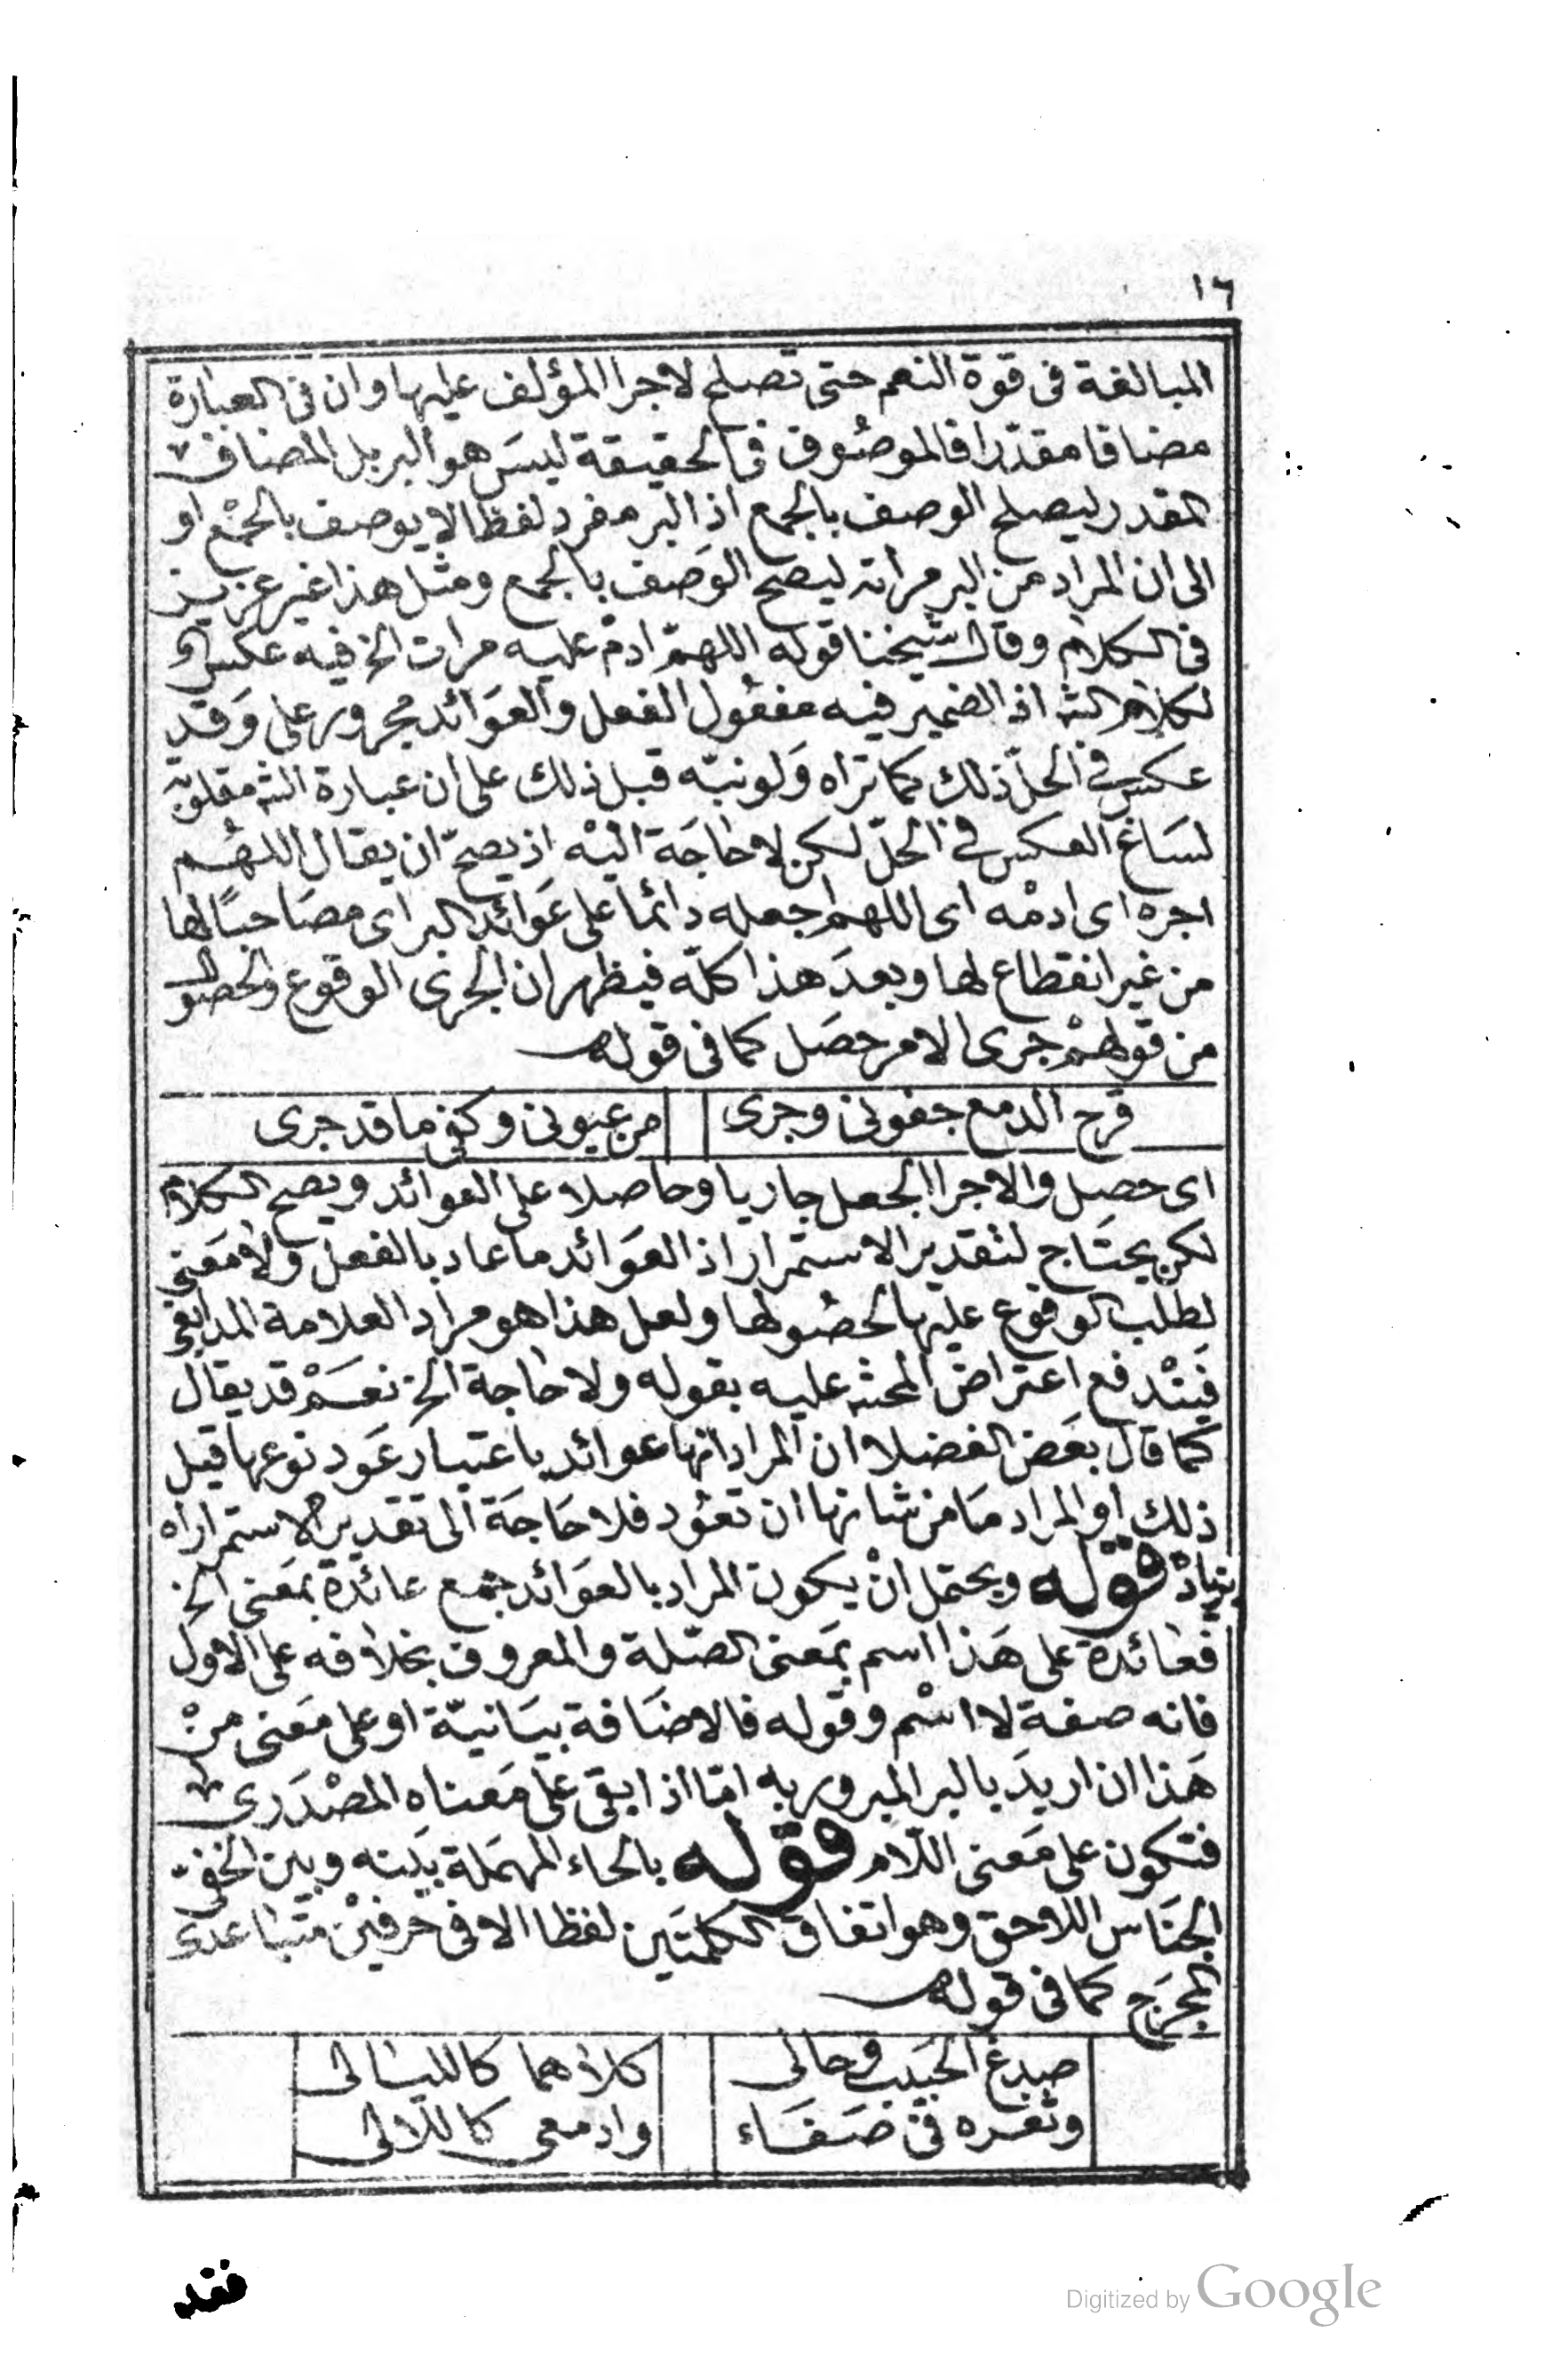 ١٦
المبالغة فى قوة النعم حتى تصلح لاجرا المؤلف عليها وان فى العبارة
مضافا مقدّرا فالموصُوف فى الحقيقة ليسَ هو البر بل المضاف
المقدر ليصلح الوصف بالجمع اذ البر مفرد لفظا لا يوصف بالجمْع او
الى ان المراد من البر مراته ليصح الوَصف بالجمع ومثل هذا غير عزيز
فى الكلام وقال شيخنا قوله اللهمّ ادمْ عليه مرات الخ فيه عكس
لكلام الشه اذ الضمير فيه مفعُول الفعل والعَوائد مجرور على وَقد
عكس فى الحلّ ذلك كما تراه وَلو نبّه قبل ذلك على ان عبارة الشه مقلوبة
لسَاغ العكس فى الحلّ لكن لا حَاجَة اليْه اذ يصحّ ان يقال اللهُم
اجره اى ادمْه اى اللهم اجعله دائمًا على عَوائد البر اى مصَاحبًا لها
من غير انقطاع لها وبعدَ هذا كلّه فيظهر ان الجرى الوقوع والحصول
من قولهمْ جرى الامر حصَل كما فى قوله
قرح الدمع جفونى وجرى من عيونى وكفى ما قد جرى
اى حصل والاجرا الجعل جاريا وحاصلا على العوائد ويصح الكلام
لكن يحتَاج لتقدير الاستمرار اذ العَوائد ما عاد بالفعل ولا مَعنى
لطلب الوقوع عليها لحصُولها ولعل هذا هو مراد العلامة المدابغى
فَينْدفع اعتراض المحشه عليه بقوله ولا حاجة الخ نعَمْ قد يقال
كما قال بعَض الفضلا ان المراد انها عوائد باعتبار عَود نوعها قبل
ذلك او المراد مَا من شانها ان تعُود فلا حَاجَة الى تقدير الاستمرار اه
بزيادة قوله ويحتمل انْ يكون المراد بالعَوائد جمع عائدة بمَعنى الخ
فعائدة على هَذا اسم بمَعنى الصّلة والمعروف بخلافه على الاول
فانه صفة لا اسْم وقوله فالاضَافة بيَانيّة او على مَعنى منْ
هَذا ان اريدَ بالبر المبرور به امّا اذا بقى على مَعناه المصْدَرى
فتكون على مَعنى اللّام قوله بالحاء المهمَلة بيَنه وبين الخفى
الجنَاس اللاحق وهو اتفاق الكلمتَين لفظا الا فى حَرفيْن متباعدى
المخرَج كما فى قوله
صدغ الحَبيب وحالى كلاهما كالليالى
وثغره فى صَفَاء وادمعى كاللالى
فقد
Digitized by Google